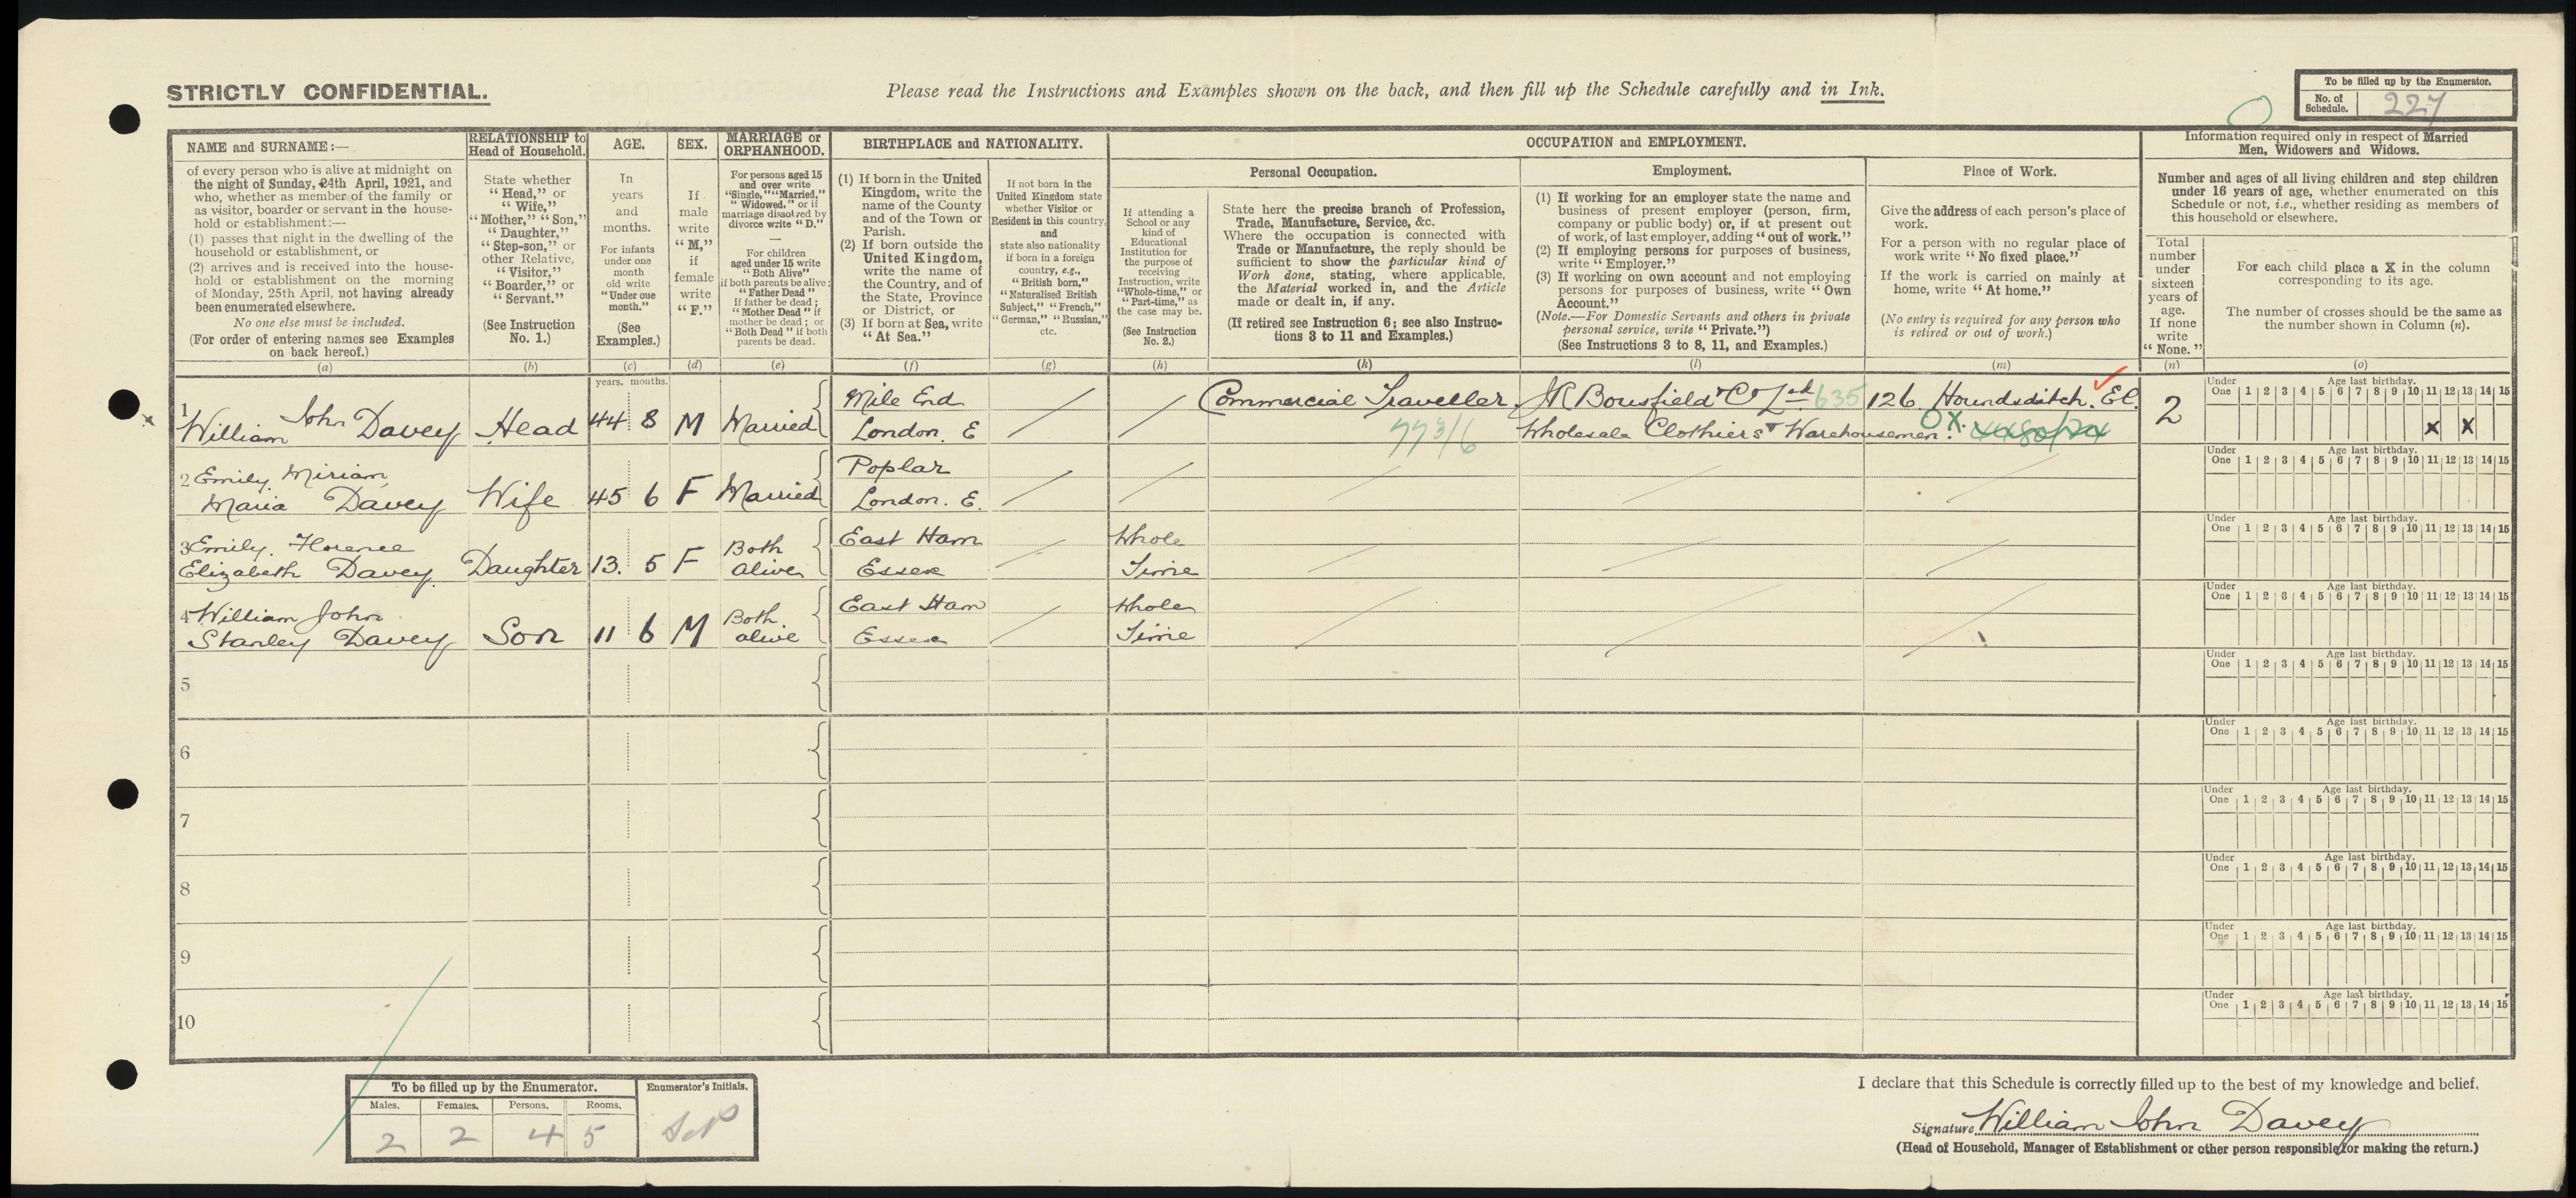 STRICTLY CONFIDENTIAL.
Please read the Instructions and Examples shown on the back, and then fill up the Schedule carefully and in Ink.
To be filled up by the Enumerator.
No. of Schedule. 227
NAME and SURNAME :—
of every person who is alive at midnight on
the night of Sunday, 24th April, 1921, and
who, whether as member of the family or
as visitor, boarder or servant in the house-
hold or establishment:—
(1) passes that night in the dwelling of the
household or establishment, or
(2) arrives and is received into the house-
hold or establishment on the morning
of Monday, 25th April, not having already
been enumerated elsewhere.
No one else must be included.
(For order of entering names see Examples
on back hereof.)
(a)
RELATIONSHIP to
Head of Household.
State whether
"Head," or
"Wife,"
"Mother," "Son,"
"Daughter,"
"Step-son," or
other Relative,
"Visitor,"
"Boarder," or
"Servant."
(See Instruction
No. 1.)
(b)
AGE.
In
years
and
months.
For infants
under one
month
old write
"Under one
month."
(See
Examples.)
(c)
SEX.
If
male
write
"M,"
if
female
write
"F."
(d)
MARRIAGE or
ORPHANHOOD.
For persons aged 15
and over write
"Single," "Married,"
"Widowed," or if
marriage dissolved by
divorce write "D."
—
For children
aged under 15 write
"Both Alive"
if both parents be alive;
"Father Dead"
if father be dead;
"Mother Dead" if
mother be dead; or
"Both Dead" if both
parents be dead.
(e)
BIRTHPLACE and NATIONALITY.
(1) If born in the United
Kingdom, write the
name of the County
and of the Town or
Parish.
(2) If born outside the
United Kingdom,
write the name of
the Country, and of
the State, Province
or District, or
(3) If born at Sea, write
"At Sea."
(f)
If not born in the
United Kingdom state
whether Visitor or
Resident in this country,
and
state also nationality
if born in a foreign
country, e.g.,
"British born,"
"Naturalised British
Subject," "French,"
"German," "Russian,"
etc.
(g)
OCCUPATION and EMPLOYMENT.
Personal Occupation.
If attending a
School or any
kind of
Educational
Institution for
the purpose of
receiving
Instruction, write
"Whole-time," or
"Part-time," as
the case may be.
(See Instruction
No. 2.)
(h)
State here the precise branch of Profession,
Trade, Manufacture, Service, &c.
Where the occupation is connected with
Trade or Manufacture, the reply should be
sufficient to show the particular kind of
Work done, stating, where applicable,
the Material worked in, and the Article
made or dealt in, if any.
(If retired see Instruction 6; see also Instruc-
tions 3 to 11 and Examples.)
(k)
Employment.
(1) If working for an employer state the name and
business of present employer (person, firm,
company or public body) or, if at present out
of work, of last employer, adding "out of work."
(2) If employing persons for purposes of business,
write "Employer."
(3) If working on own account and not employing
persons for purposes of business, write "Own
Account."
(Note.—For Domestic Servants and others in private
personal service, write "Private.")
(See Instructions 3 to 8, 11, and Examples.)
(l)
Place of Work.
Give the address of each person's place of
work.
For a person with no regular place of
work write "No fixed place."
If the work is carried on mainly at
home, write "At home."
(No entry is required for any person who
is retired or out of work.)
(m)
Information required only in respect of Married
Men, Widowers and Widows.
Number and ages of all living children and step children
under 16 years of age, whether enumerated on this
Schedule or not, i.e., whether residing as members of
this household or elsewhere.
Total
number
under
sixteen
years of
age.
If none
write
"None."
(n)
For each child place a X in the column
corresponding to its age.
The number of crosses should be the same as
the number shown in Column (n).
(o)
years. months.
1 William John Davey Head 44 8 M Married Mile End
London. E
Commercial Traveller 635 126 Houndsditch. E.C. 2
Wholesale Clothiers & Warehousemen. OX.
773/6
Under One 1 2 3 4 5 6 7 8 9 10 11 12 13 14 15
Age last birthday.
x x
2 Emily Miriam
Maria Davey Wife 45 6 F Married Poplar
London. E.
Under One 1 2 3 4 5 6 7 8 9 10 11 12 13 14 15
Age last birthday.
3 Emily. Florence
Elizabeth Davey. Daughter 13. 5 F Both
alive East Ham
Essex Whole
Time
Under One 1 2 3 4 5 6 7 8 9 10 11 12 13 14 15
Age last birthday.
4 William John
Stanley Davey Son 11 6 M Both
alive East Ham
Essex Whole
Time
Under One 1 2 3 4 5 6 7 8 9 10 11 12 13 14 15
Age last birthday.
5
Under One 1 2 3 4 5 6 7 8 9 10 11 12 13 14 15
Age last birthday.
6
Under One 1 2 3 4 5 6 7 8 9 10 11 12 13 14 15
Age last birthday.
7
Under One 1 2 3 4 5 6 7 8 9 10 11 12 13 14 15
Age last birthday.
8
Under One 1 2 3 4 5 6 7 8 9 10 11 12 13 14 15
Age last birthday.
9
Under One 1 2 3 4 5 6 7 8 9 10 11 12 13 14 15
Age last birthday.
10
Under One 1 2 3 4 5 6 7 8 9 10 11 12 13 14 15
Age last birthday.
To be filled up by the Enumerator.
Males. Females. Persons. Rooms.
2 2 4 5
Enumerator's Initials.
I declare that this Schedule is correctly filled up to the best of my knowledge and belief.
Signature William John Davey
(Head of Household, Manager of Establishment or other person responsible for making the return.)